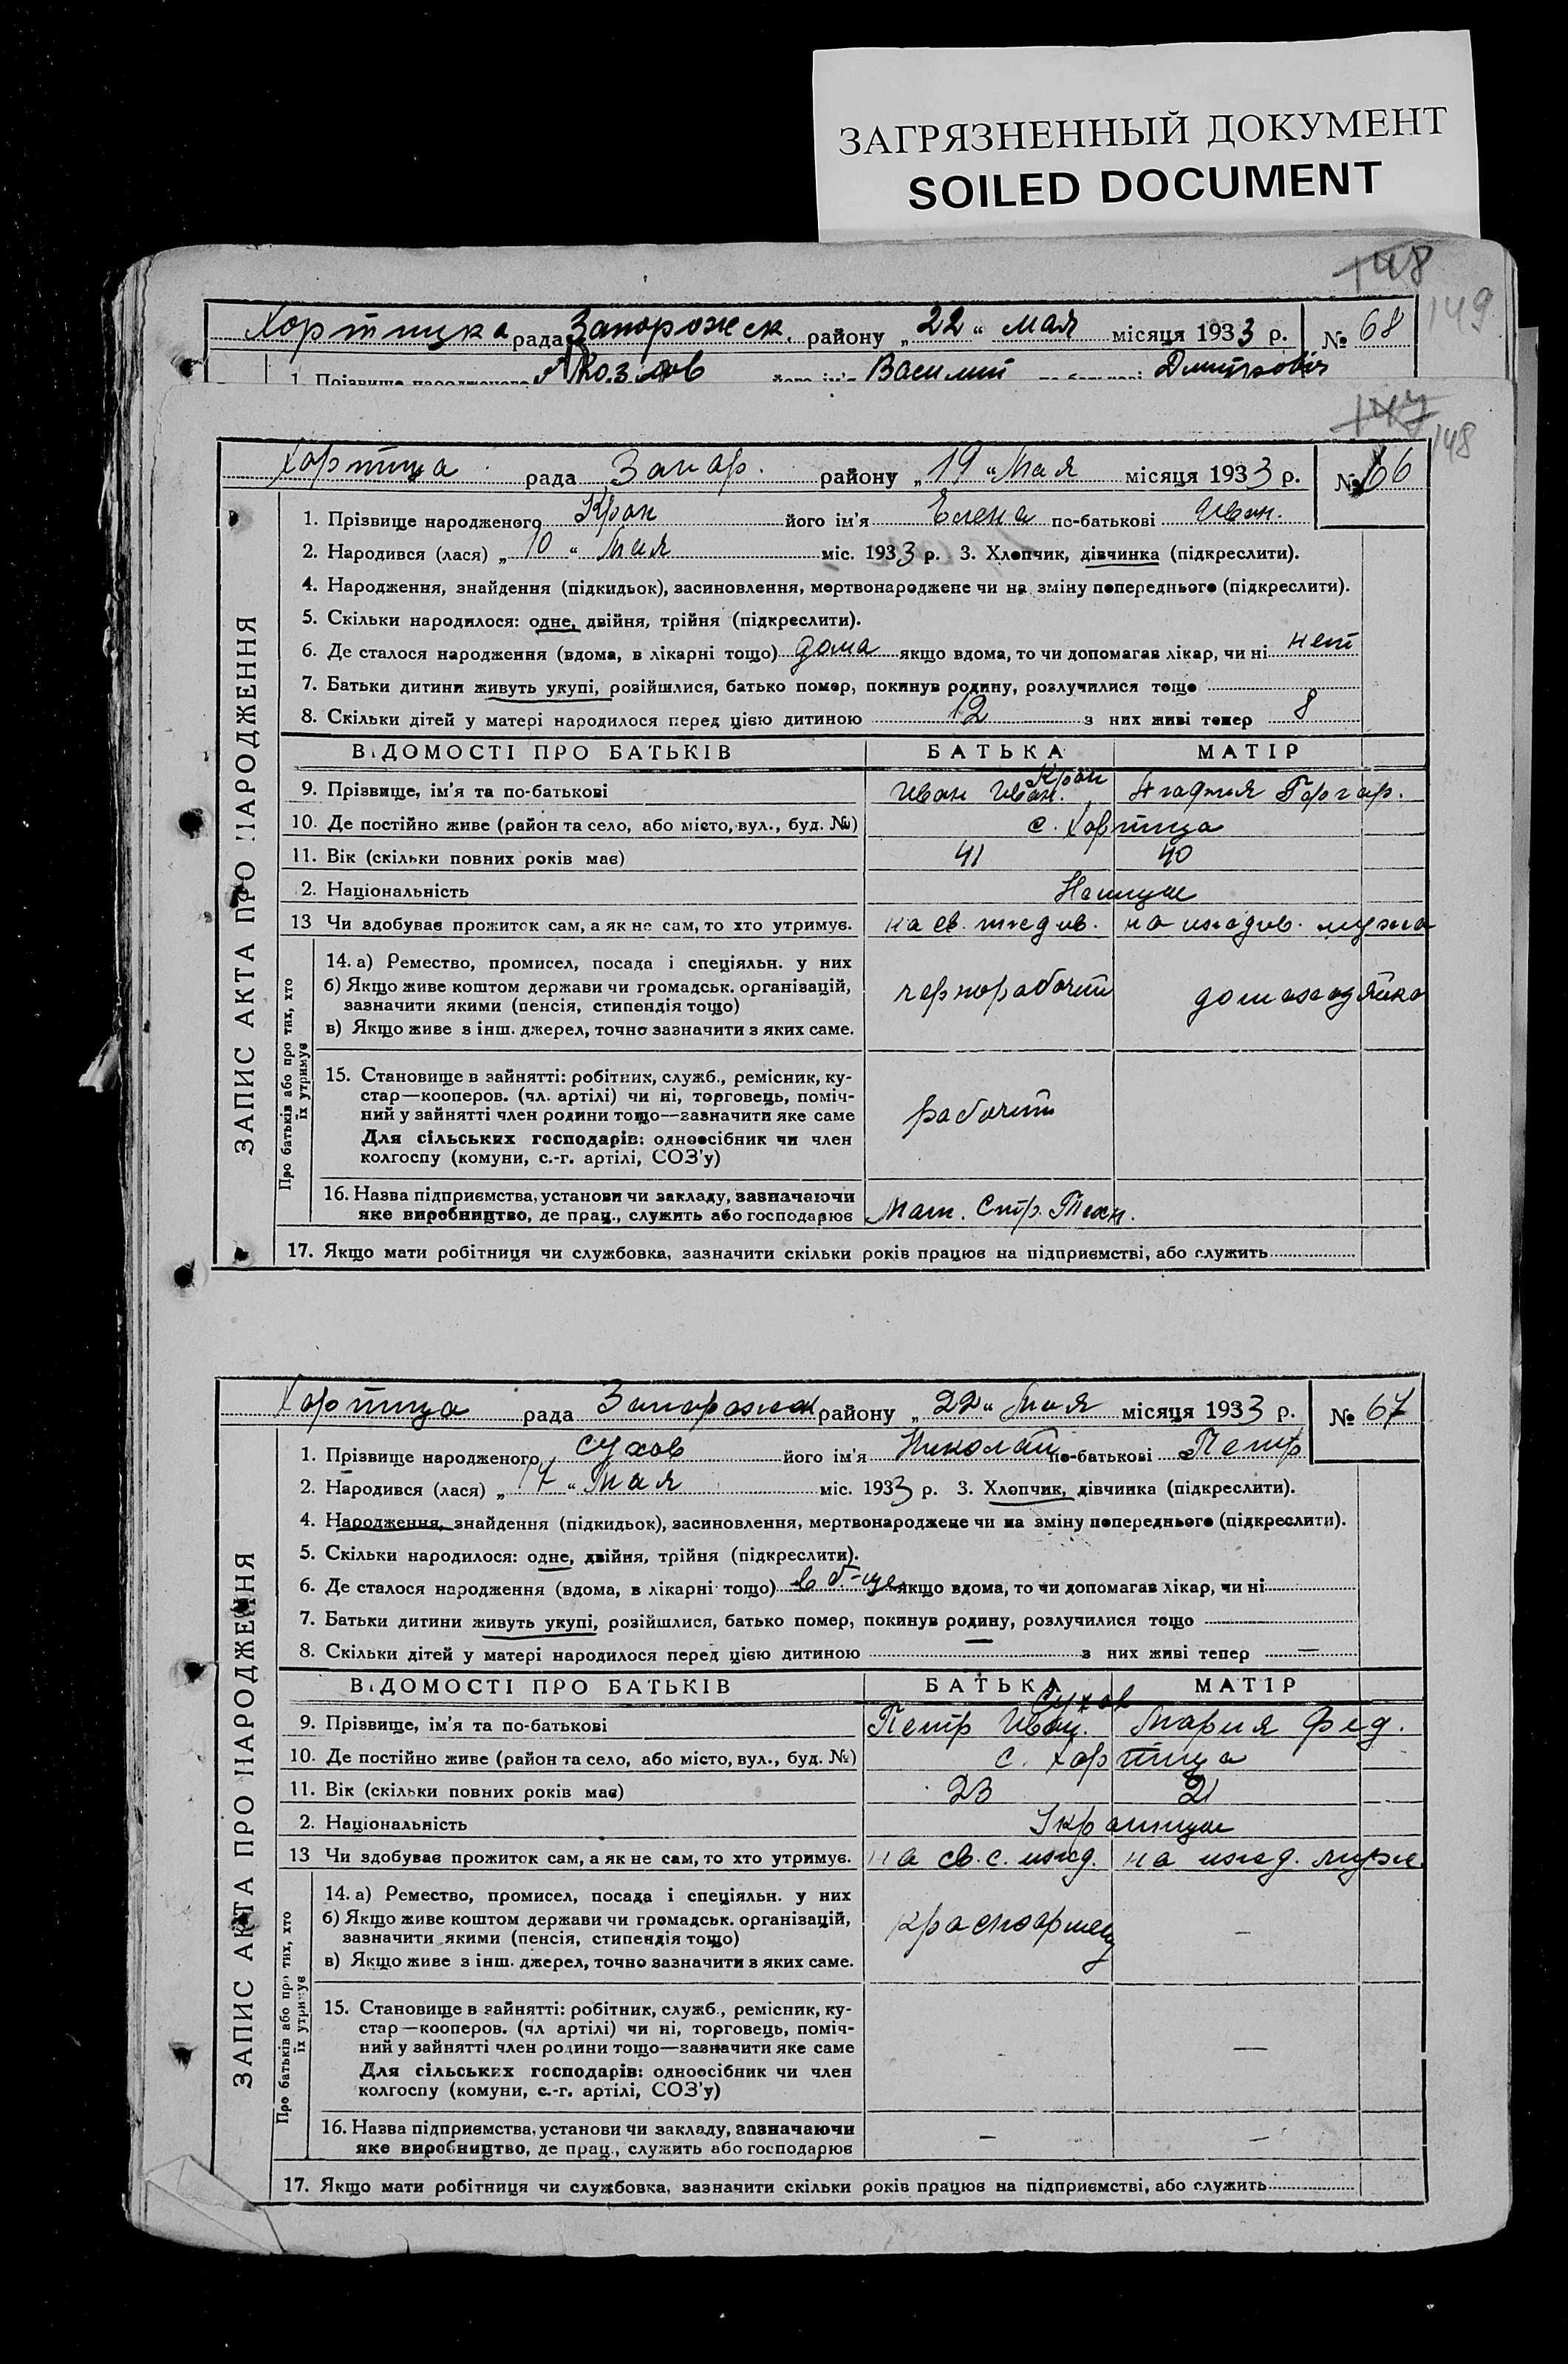 ЗАГРЯЗНЕННЫЙ ДОКУМЕНТ
SOILED DOCUMENT
148
149
Хортицка рада Запорожск. району „22“ мая місяця 1933 р. № 68
1. Прізвище народженого Козлов його ім'я Василий по-батькові Дмитрович
147
148
Хортица рада Запор. району „19“ Мая місяця 1933 р. № 66
1. Прізвище народженого Кран його ім'я Елена по-батькові Иван.
2. Народився (лася) „10“ Мая міс. 1933 р. 3. Хлопчик, дівчинка (підкреслити).
4. Народження, знайдення (підкидьок), засиновлення, мертвонароджене чи на зміну попереднього (підкреслити).
5. Скільки народилося: одне, двійня, трійня (підкреслити).
6. Де сталося народження (вдома, в лікарні тощо) дома якщо вдома, то чи допомагав лікар, чи ні нет
7. Батьки дитини живуть укупі, розійшлися, батько помер, покинув родину, розлучилися тощо
8. Скільки дітей у матері народилося перед цією дитиною 12 з них живі тепер 8
ВІДОМОСТІ ПРО БАТЬКІВ БАТЬКА МАТІР
9. Прізвище, ім'я та по-батькові Кран Иван Иван.
10. Де постійно живе (район та село, або місто, вул., буд. №) с. Хортица
11. Вік (скільки повних років має) 41 40
2. Національність Немцы
13 Чи здобуває прожиток сам, а як не сам, то хто утримує. на св. иждив. на иждив. мужа
14. а) Ремество, промисел, посада і спеціяльн. у них
б) Якщо живе коштом держави чи громадськ. організацій,
зазначити якими (пенсія, стипендія тощо) чернорабочий домохозяйка
в) Якщо живе з інш. джерел, точно зазначити з яких саме.
15. Становище в зайнятті: робітник, служб., ремісник, ку-
стар—кооперов. (чл. артілі) чи ні, торговець, поміч-
ний у зайнятті член родини тощо—зазначити яке саме рабочий
Для сільських господарів: одноосібник чи член
колгоспу (комуни, с.-г. артілі, СОЗ'у)
16. Назва підприємства, установи чи закладу, зазначаючи
яке виробництво, де прац., служить або господарює Маш. Стр. Техн.
17. Якщо мати робітниця чи службовка, зазначити скільки років працює на підприємстві, або служить
ЗАПИС АКТА ПРО НАРОДЖЕННЯ
Про батьків або про тих, хто
їх утримує
Хортица рада Запорожск району „22“ Мая місяця 1933 р. № 67
1. Прізвище народженого Сухов його ім'я Николай по-батькові Петр
2. Народився (лася) „17“ Мая міс. 1933 р. 3. Хлопчик, дівчинка (підкреслити).
4. Народження, знайдення (підкидьок), засиновлення, мертвонароджене чи на зміну попереднього (підкреслити).
5. Скільки народилося: одне, двійня, трійня (підкреслити).
6. Де сталося народження (вдома, в лікарні тощо) в б-це якщо вдома, то чи допомагав лікар, чи ні
7. Батьки дитини живуть укупі, розійшлися, батько помер, покинув родину, розлучилися тощо
8. Скільки дітей у матері народилося перед цією дитиною — з них живі тепер —
ВІДОМОСТІ ПРО БАТЬКІВ БАТЬКА МАТІР
9. Прізвище, ім'я та по-батькові Сухов Петр Иван. Мария Фед.
10. Де постійно живе (район та село, або місто, вул., буд. №) с. Хортица
11. Вік (скільки повних років має) 23 21
2. Національність Украинцы
13 Чи здобуває прожиток сам, а як не сам, то хто утримує. на св. с. ижд. на ижд. мужа
14. а) Ремество, промисел, посада і спеціяльн. у них
б) Якщо живе коштом держави чи громадськ. організацій,
зазначити якими (пенсія, стипендія тощо) красноармеец —
в) Якщо живе з інш. джерел, точно зазначити з яких саме.
15. Становище в зайнятті: робітник, служб., ремісник, ку-
стар—кооперов. (чл артілі) чи ні, торговець, поміч-
ний у зайнятті член родини тощо—зазначити яке саме - —
Для сільських господарів: одноосібник чи член
колгоспу (комуни, с.-г. артілі, СОЗ'у)
16. Назва підприємства, установи чи закладу, зазначаючи
яке виробництво, де прац., служить або господарює — —
17. Якщо мати робітниця чи службовка, зазначити скільки років працює на підприємстві, або служить
ЗАПИС АКТА ПРО НАРОДЖЕННЯ
Про батьків або про тих, хто
їх утримує